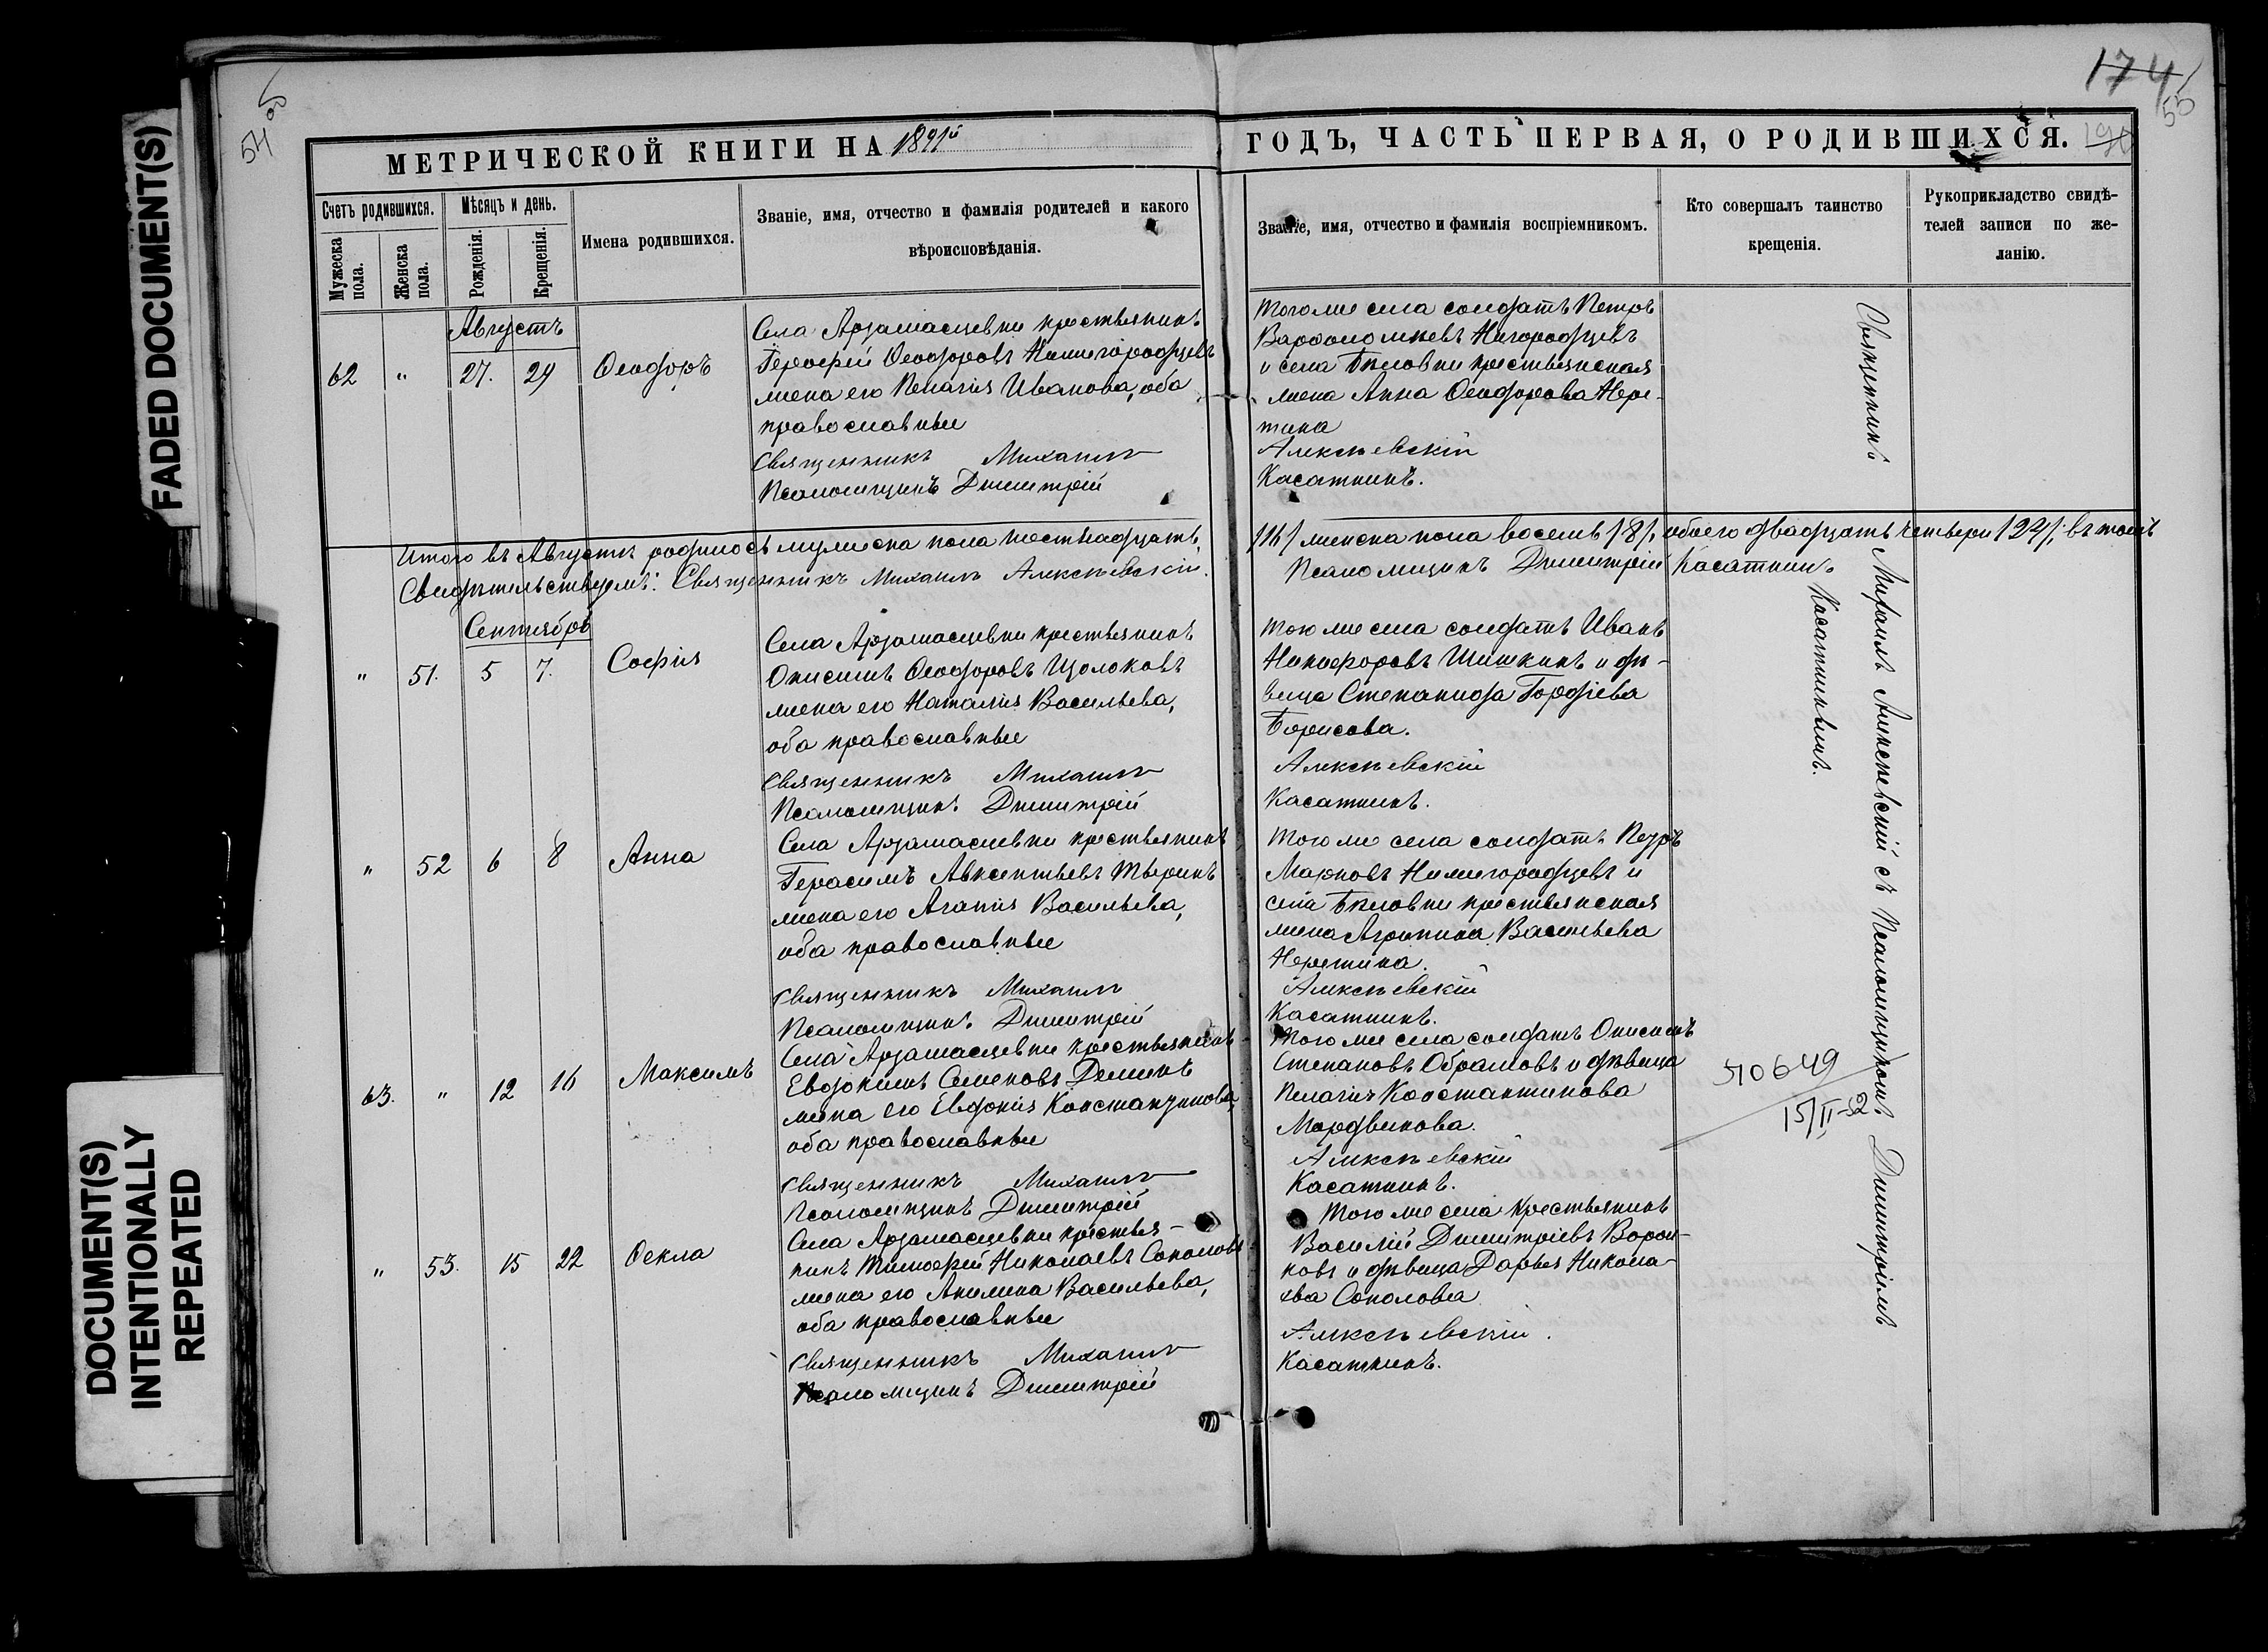 FADED DOCUMENT(S)
DOCUMENT(S)
INTENTIONALLY
REPEATED
54
174
55
МЕТРИЧЕСКОЙ КНИГИ НА 1891й
ГОДЪ, ЧАСТЬ ПЕРВАЯ, О РОДИВШИХСЯ.
Счетъ родившихся.
Мужеска пола.
Женска пола.
Мѣсяцъ и день.
Рожденія.
Крещенія.
Имена родившихся.
Званіе, имя, отчество и фамилія родителей и какого
вѣроисповѣданія.
Званіе, имя, отчество и фамилія воспріемникомъ.
Кто совершалъ таинство
крещенія.
Рукоприкладство свидѣ-
телей записи по же-
ланію.
Августъ
62 " 27. 29 Ѳеодоръ
Села Арзамасцевки крестьянинъ
Ѳеодоровъ Нижегородцевъ
жена его Пелагія Иванова, оба
православные
Священникъ Михаилъ
Псаломщикъ Димитрій
Того же села солдатъ Петръ
Варѳоломѣевъ Нигородцевъ
и села Бѣловки крестьянская
жена Анна Ѳеодорова Нере-
тина
Алексѣевскій
Касаткинъ.
Итого въ Августѣ родилось мужеска пола шестнадцать,
/16/ женска пола восемь /8/, обоего двадцать четверо /24/; въ томъ
Свидѣтельствуемъ: Священникъ Михаилъ Алексѣевскій.
Псаломщикъ Димитрій Касаткинъ
Сентябрь
" 51. 5 7. Софія
Села Арзамасцевки крестьянинъ
Онисимъ Ѳеодоровъ Щолоковъ
жена его Наталія Васильева,
оба православные
Священникъ Михаилъ
Псаломщикъ Димитрій
Того же села солдатъ Иванъ
Никифоровъ Шишкинъ и дѣ-
вица Степанида Гордіева
Борисова.
Алексѣевскій
Касаткинъ.
" 52 6 8 Анна
Села Арзамасцевки крестьянинъ
Герасимъ Авксентьевъ Тверинъ
жена его Агапія Васильева,
оба православные
Священникъ Михаилъ
Псаломщикъ Димитрій
Того же села солдатъ Петръ
Нижегородцевъ и
села Бѣловки крестьянская
жена Агрипина Васильева
Неретина.
Алексѣевскій
Касаткинъ.
63. " 12 16 Максимъ
Села Арзамасцевки крестьянинъ
Евдокимъ Семеновъ Деминъ
жена его Евдокія Константинова,
оба православные
Священникъ Михаилъ
Псаломщикъ Димитрій
Того же села солдатъ Онисимъ
Степановъ Обрамовъ и дѣвица
Пелагія Константинова
Мордвинова.
Алексѣевскій
Касаткинъ.
" 53. 15 22 Ѳекла
Села Арзамасцевки крестья-
нинъ Тимоѳей Николаевъ Соколовъ
жена его Акилина Васильева,
оба православные
Священникъ Михаилъ
Псаломщикъ Димитрій
Того же села крестьянинъ
Василій Димитріевъ Ворон-
ковъ и дѣвица Дарья Никола-
ева Соколова
Алексѣевскій.
Касаткинъ.
Священникъ Михаилъ Алексѣевскій съ Псаломщикомъ Димитріемъ
Касаткинымъ.
510649
15/II-52